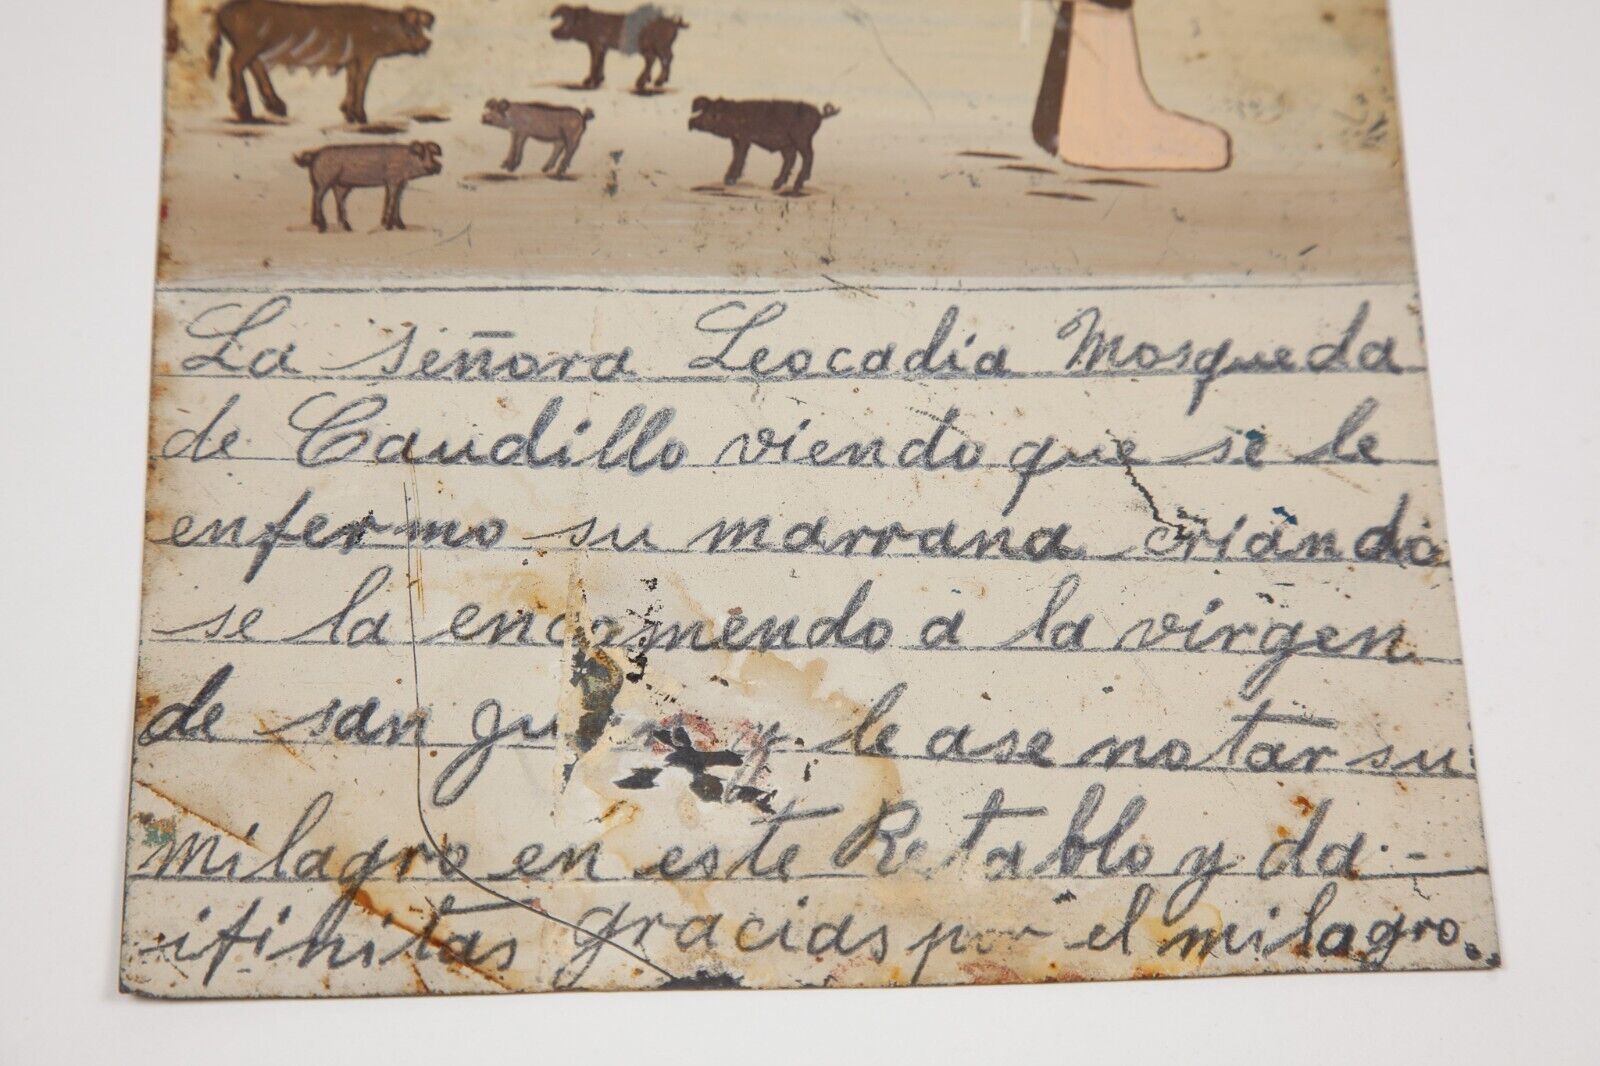 La señora Leocadia Mosqueda
de Caudillo viendo que se le
enfermo su marrana criando
se la encomendo a la virgen
de san y le ase notar su
milagro en este Retablo y da -
ifinitas gracias por el milagro.